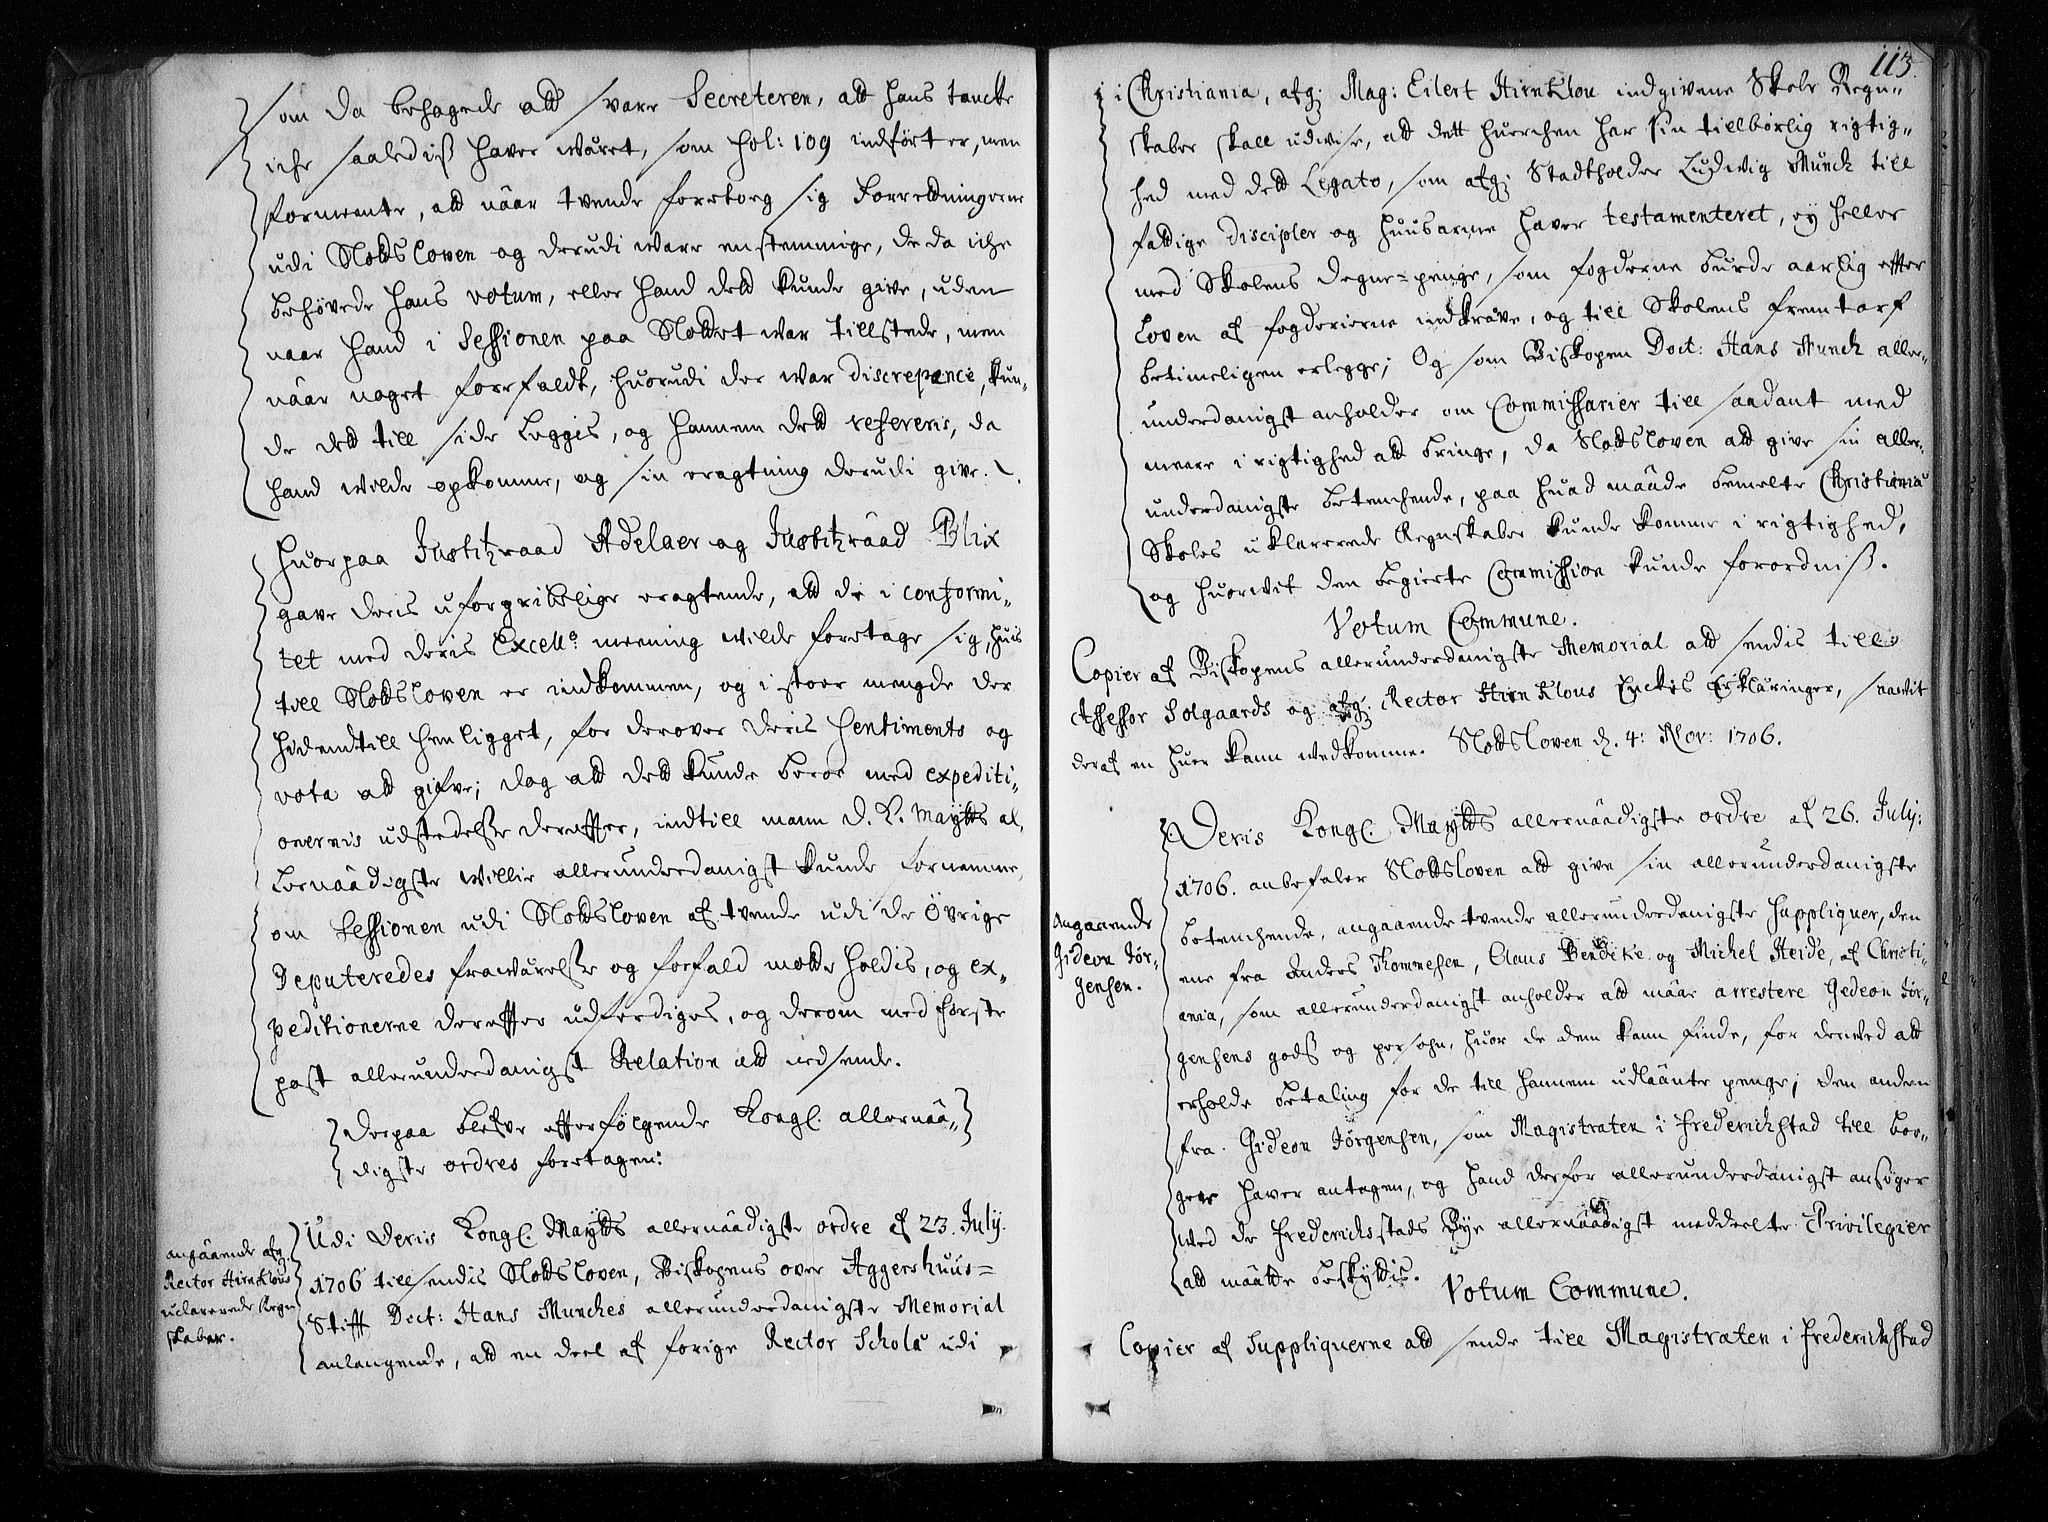 som da behagede att svare Secreteren, att hans tancke
iche saalediß haver wæret, som fol: 109 indført er, men
formeente, att nåar tvende foretoeg sig Forretningerne
udi Slottsloven og derudi ware eenstemmige, de da iche
behøvede hans votum, eller hand dett kunde give, uden
naar hand i Sessionen paa Slottet war tillstede, men
nåar noget forefaldt, huorudi der war discrepance, kun-
de dett till side leggis, og hannem dett refereris, da
hand wilde opkomme, og sin eragtning derudi give.
Huorpaa Justitzraad Adelaer og Justitzråad Blix
gave deris uforgribelige eragtende, att de i conformi-
tet med deris Excell: meening wilde foretage sig, huis
till Slottsloven er indkommen, og i stoer mengde der
hidendtill henligget, for derover deris Sentiments og
vota att gifve; dog att dett kunde beroe med expediti-
onernis udstedelse dereffter, indtill mann d. K. Maytts al-
lernåadigste willie allerunderdanigst kunde fornemme,
om Sessionen udi Slottsloven af tvende udi de Øvrige
Deputeredes frawærelse og forfald motte holdis, og ex-
peditionerne dereffter udferdiges, og derom med første
post allerunderdanigst Relation att nedsende.
Derpaa blefve effterfølgende Kongl. allernåa-
digste ordres foretagen:
angåaende afg.
Rector HirnKlous
uclarerede Regn
skaber.
Udi Deris Kongl. Maytts allernåadigste ordre af 23. July.
1706 tillsendis Slottsloven, Biskopens over Aggershuus=
Stifft Doct: Hans Munches allerunderdanigste Memorial
anlangende, att en deel af forige Rector Scholæ udi
113.
i Christiania, afg: Mag: Eilert HirnKlou indgivene Skole Regn-
skaber skall udwise, att dett huerchen har sin tillbørlig rigtig-
hed med dett Legato, som afg: Stadtholder Ludwig Munck till
fattige Discipler og huusarme haver testamenteret, ey heller
med Skolens degne=penge, som fogderne burde aarlig effter
Loven af fogderierne indkræve, og till Skolens fremtarf
betimeligen erlegge; Og som Biskopen Doct: Hans Munck aller-
underdanigst anholder om Commissarier till saadant med
meere i rigtighed att bringe, da Slottsloven att give sin aller-
underdanigste betenchende, paa huad måade bemelte Christiania
Skoles uklarerede Regnskaber kunde komme i rigtighed,
og huorvit den begierte Commission kunde forordniß.
Votum Commune.
Copier af Biskopens allerunderdanigste Memorial att sendis till
Assessor Solgaards og afg: Rector HirnKlous Enckis Erklæringer, saavit
deraf en huer kann wedkomme. Slottsloven d. 4: Nov: 1706.
Angaaende
Gideon Jør-
gensen.
Deris Kongl. Maytts allernåadigste ordre af 26. July:
1706. anbefaler Slottsloven att give sin allerunderdanigste
betenchende, angaaende tvende allerunderdanigste Suppliquer, den
ene fra Anders Thommesen, Claus Bendike og Michel Heide, af Christi-
ania, som allerunderdanigst anholder att måae arrestere Gedeon Jør-
gensens gods og persohn, huor de dem kann finde, for derved att
erholde betaling for de till hannem udlåante penge; den anden
fra Gideon Jørgensen, som Magistraten i Frederichstad till bor-
ger haver antagen, og hand derfor allerunderdanigst ansøger
wed de Frederichsstads Bye allernåadigst meddeelte Privilegier
att måatte beskyttis.
Votum Commune.
Copier af Suppliquerne att sende till Magistraten i Frederichstad